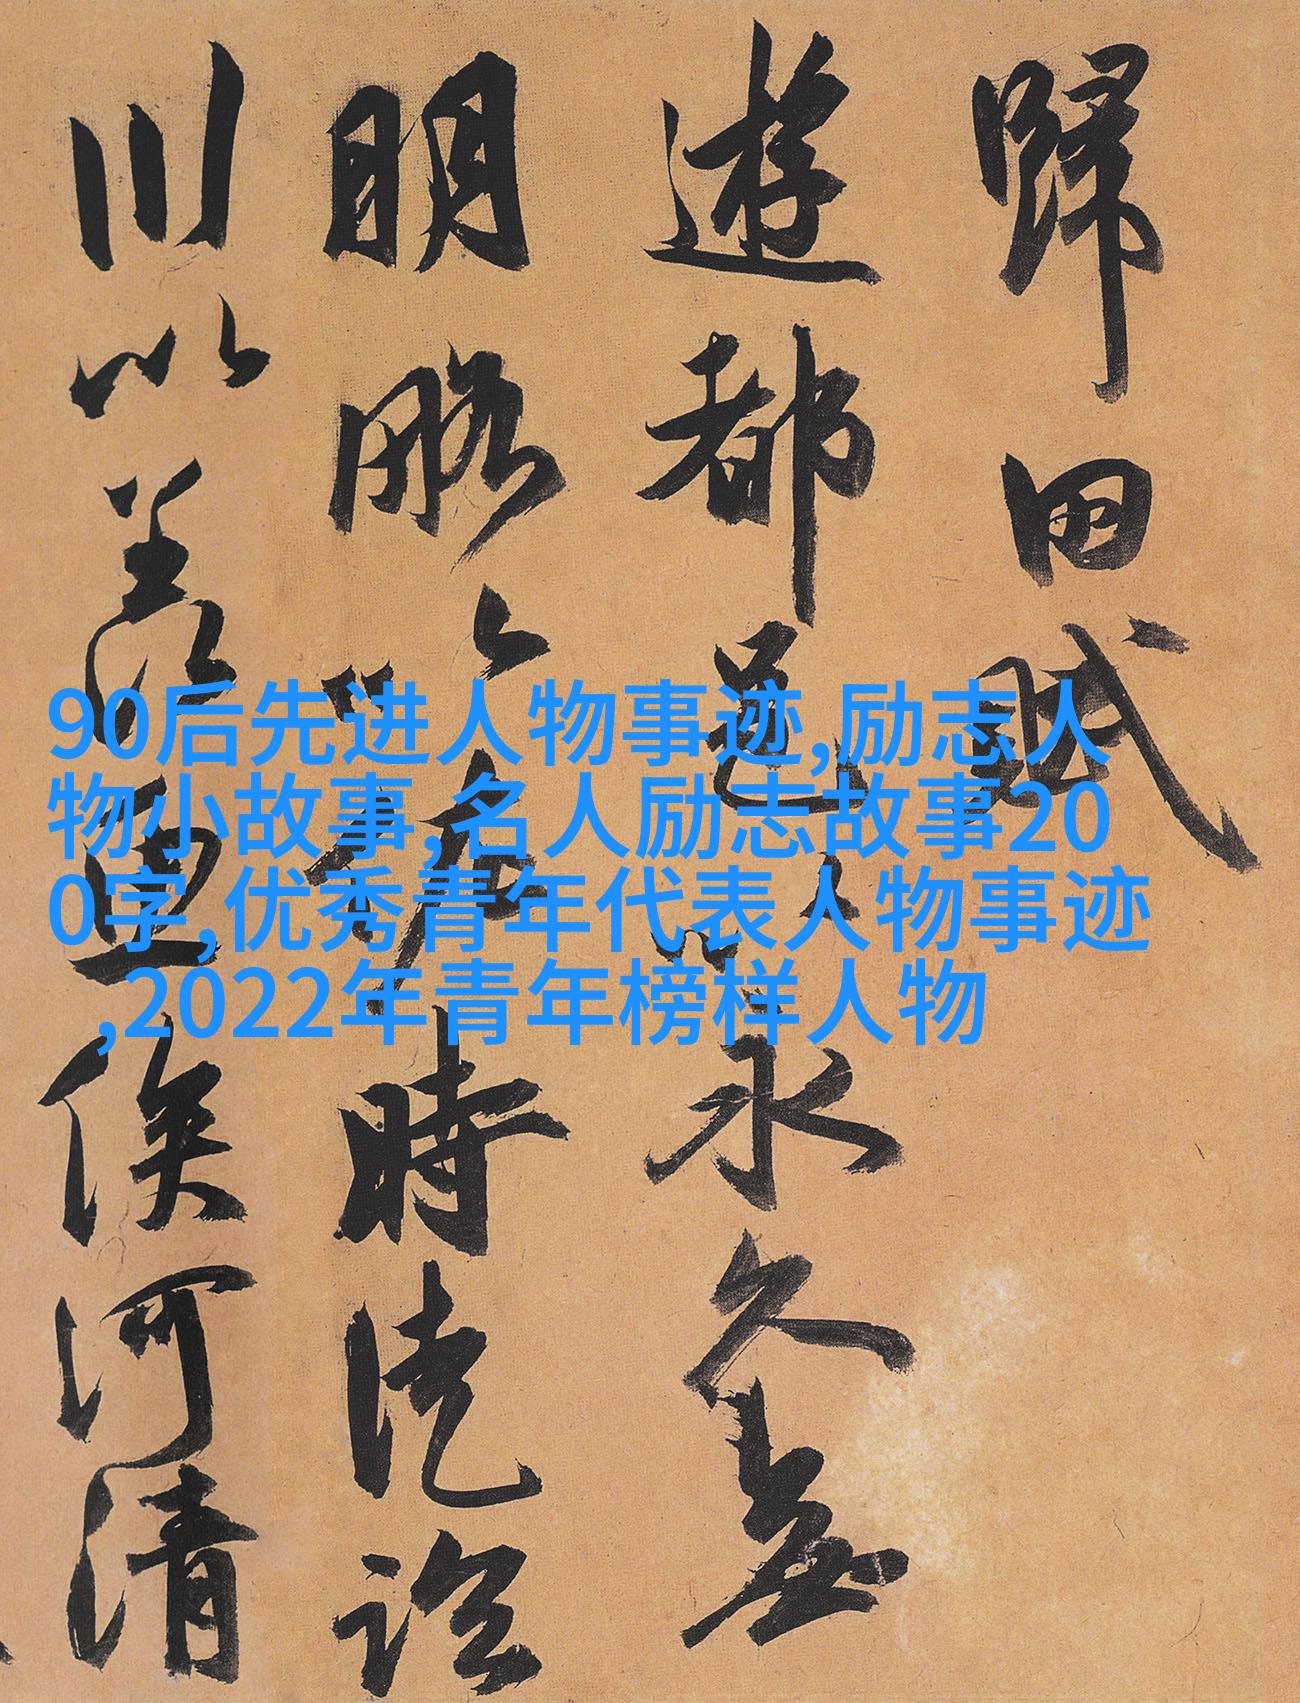 歸田賦
遊都邑以永久無
明略以佐時徒臨
川以羨魚俟河清
90后先进人物事迹,励志人
物小故事,名人励志故事20
0字,优秀青年代表人物事迹
,2022年青年榜样人物